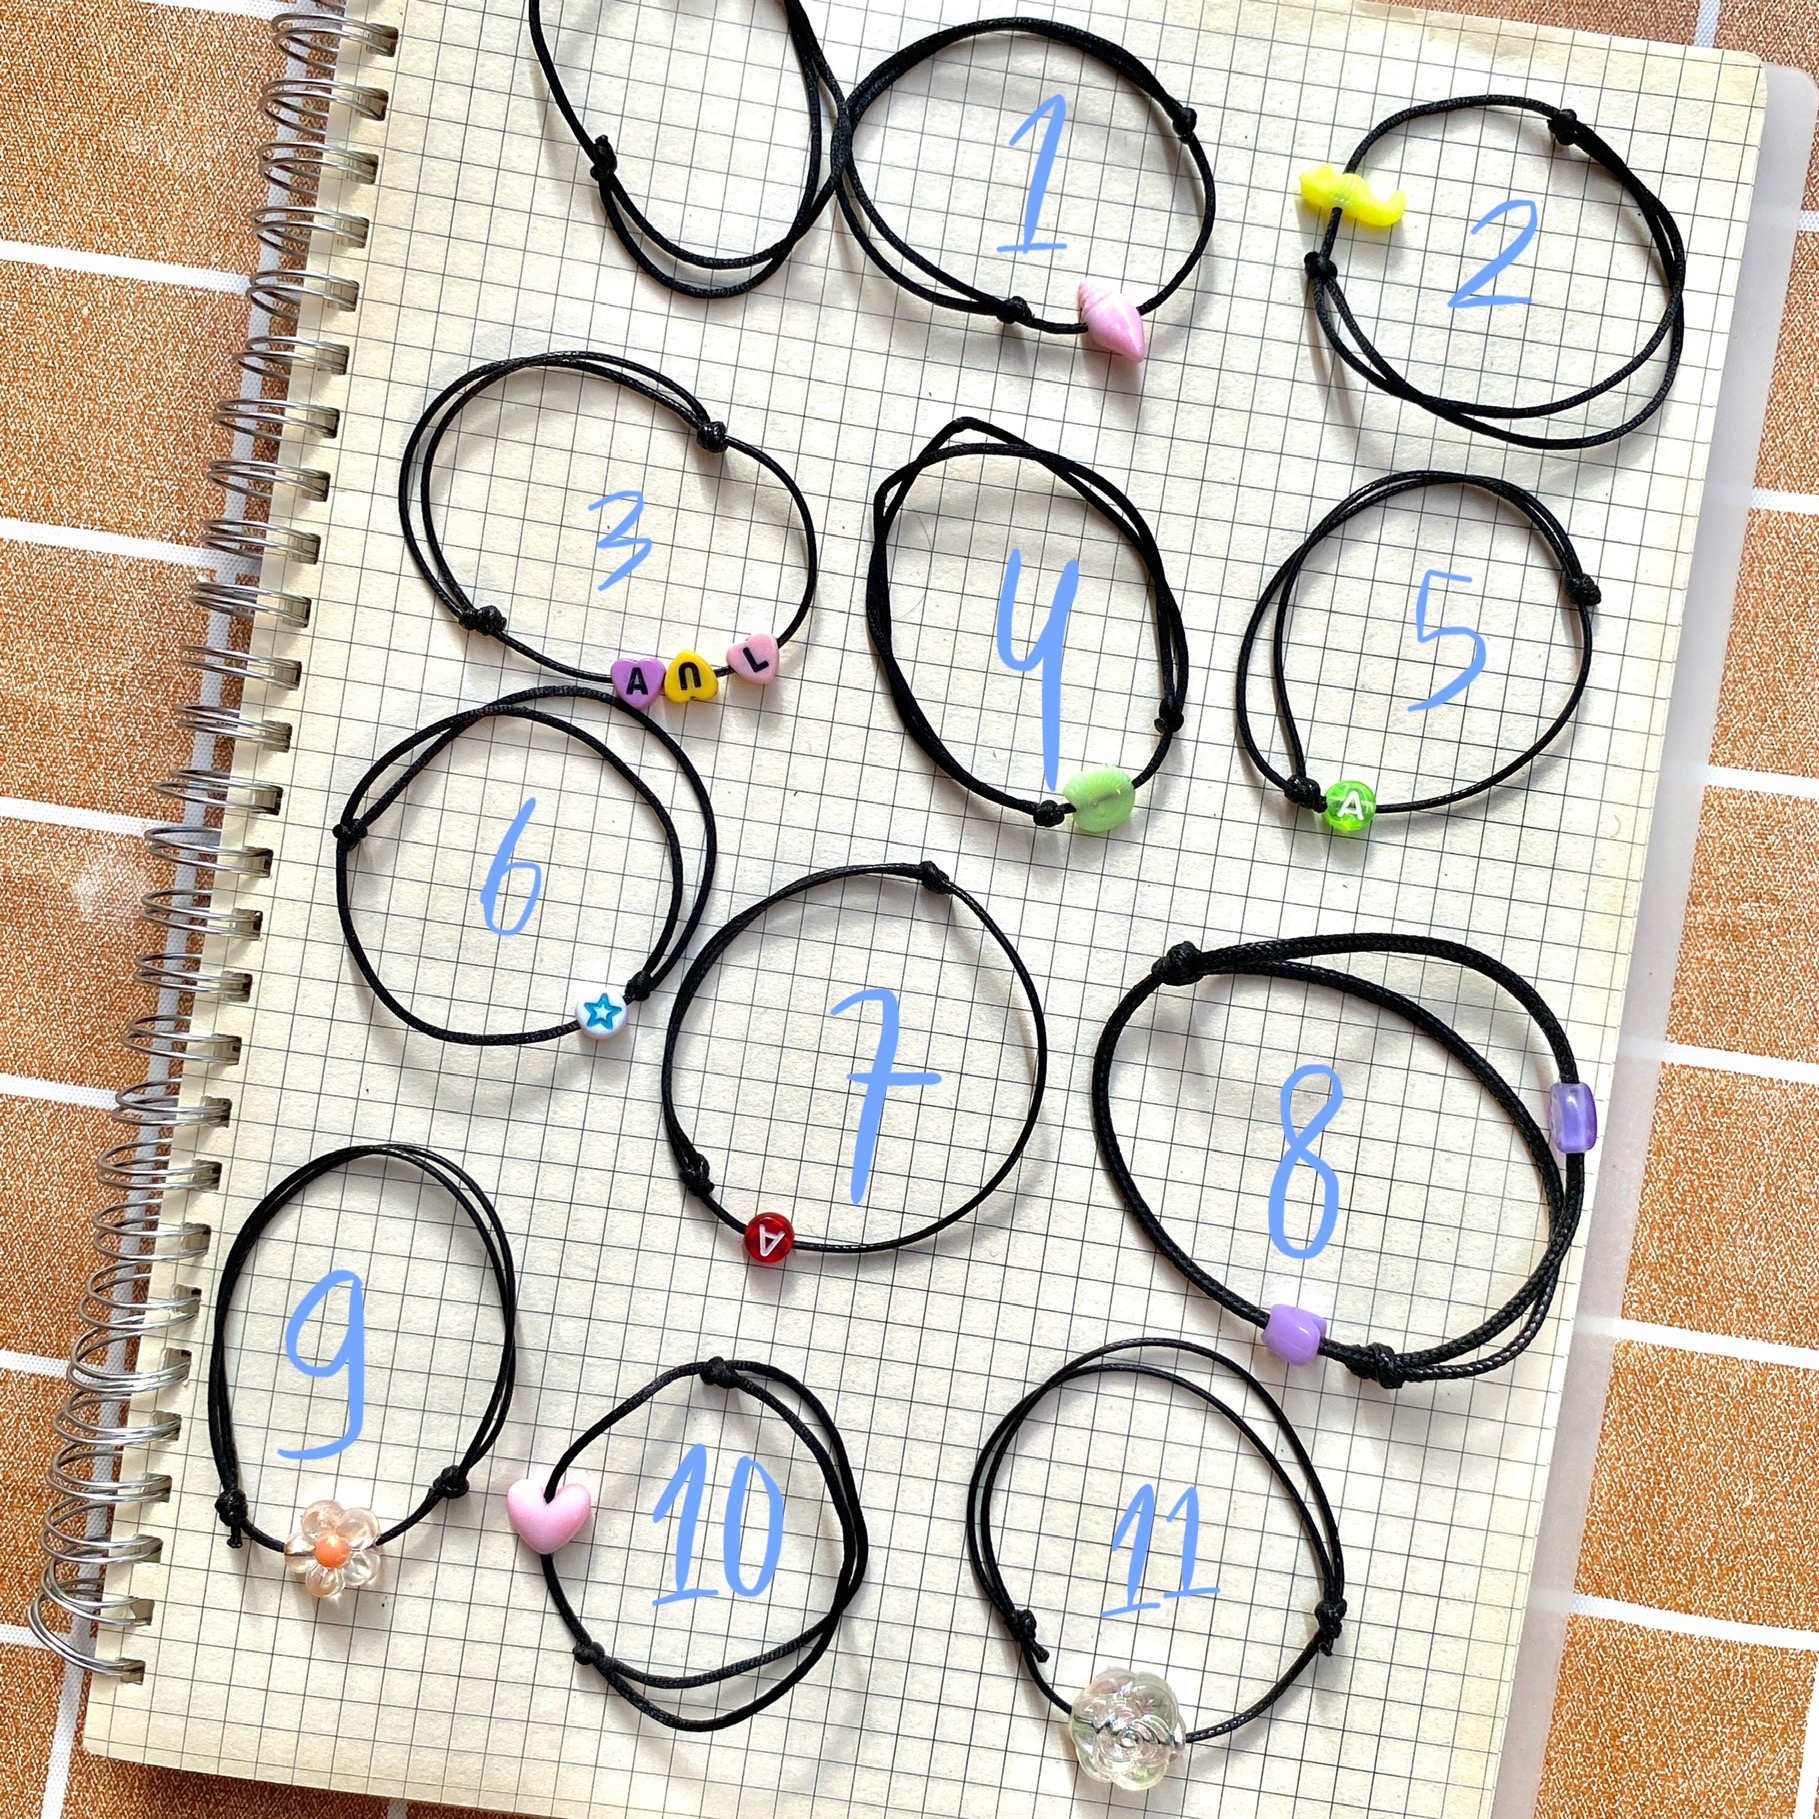 1
2
3
A U L
4
5
A
6
7
A
8
9
10
11